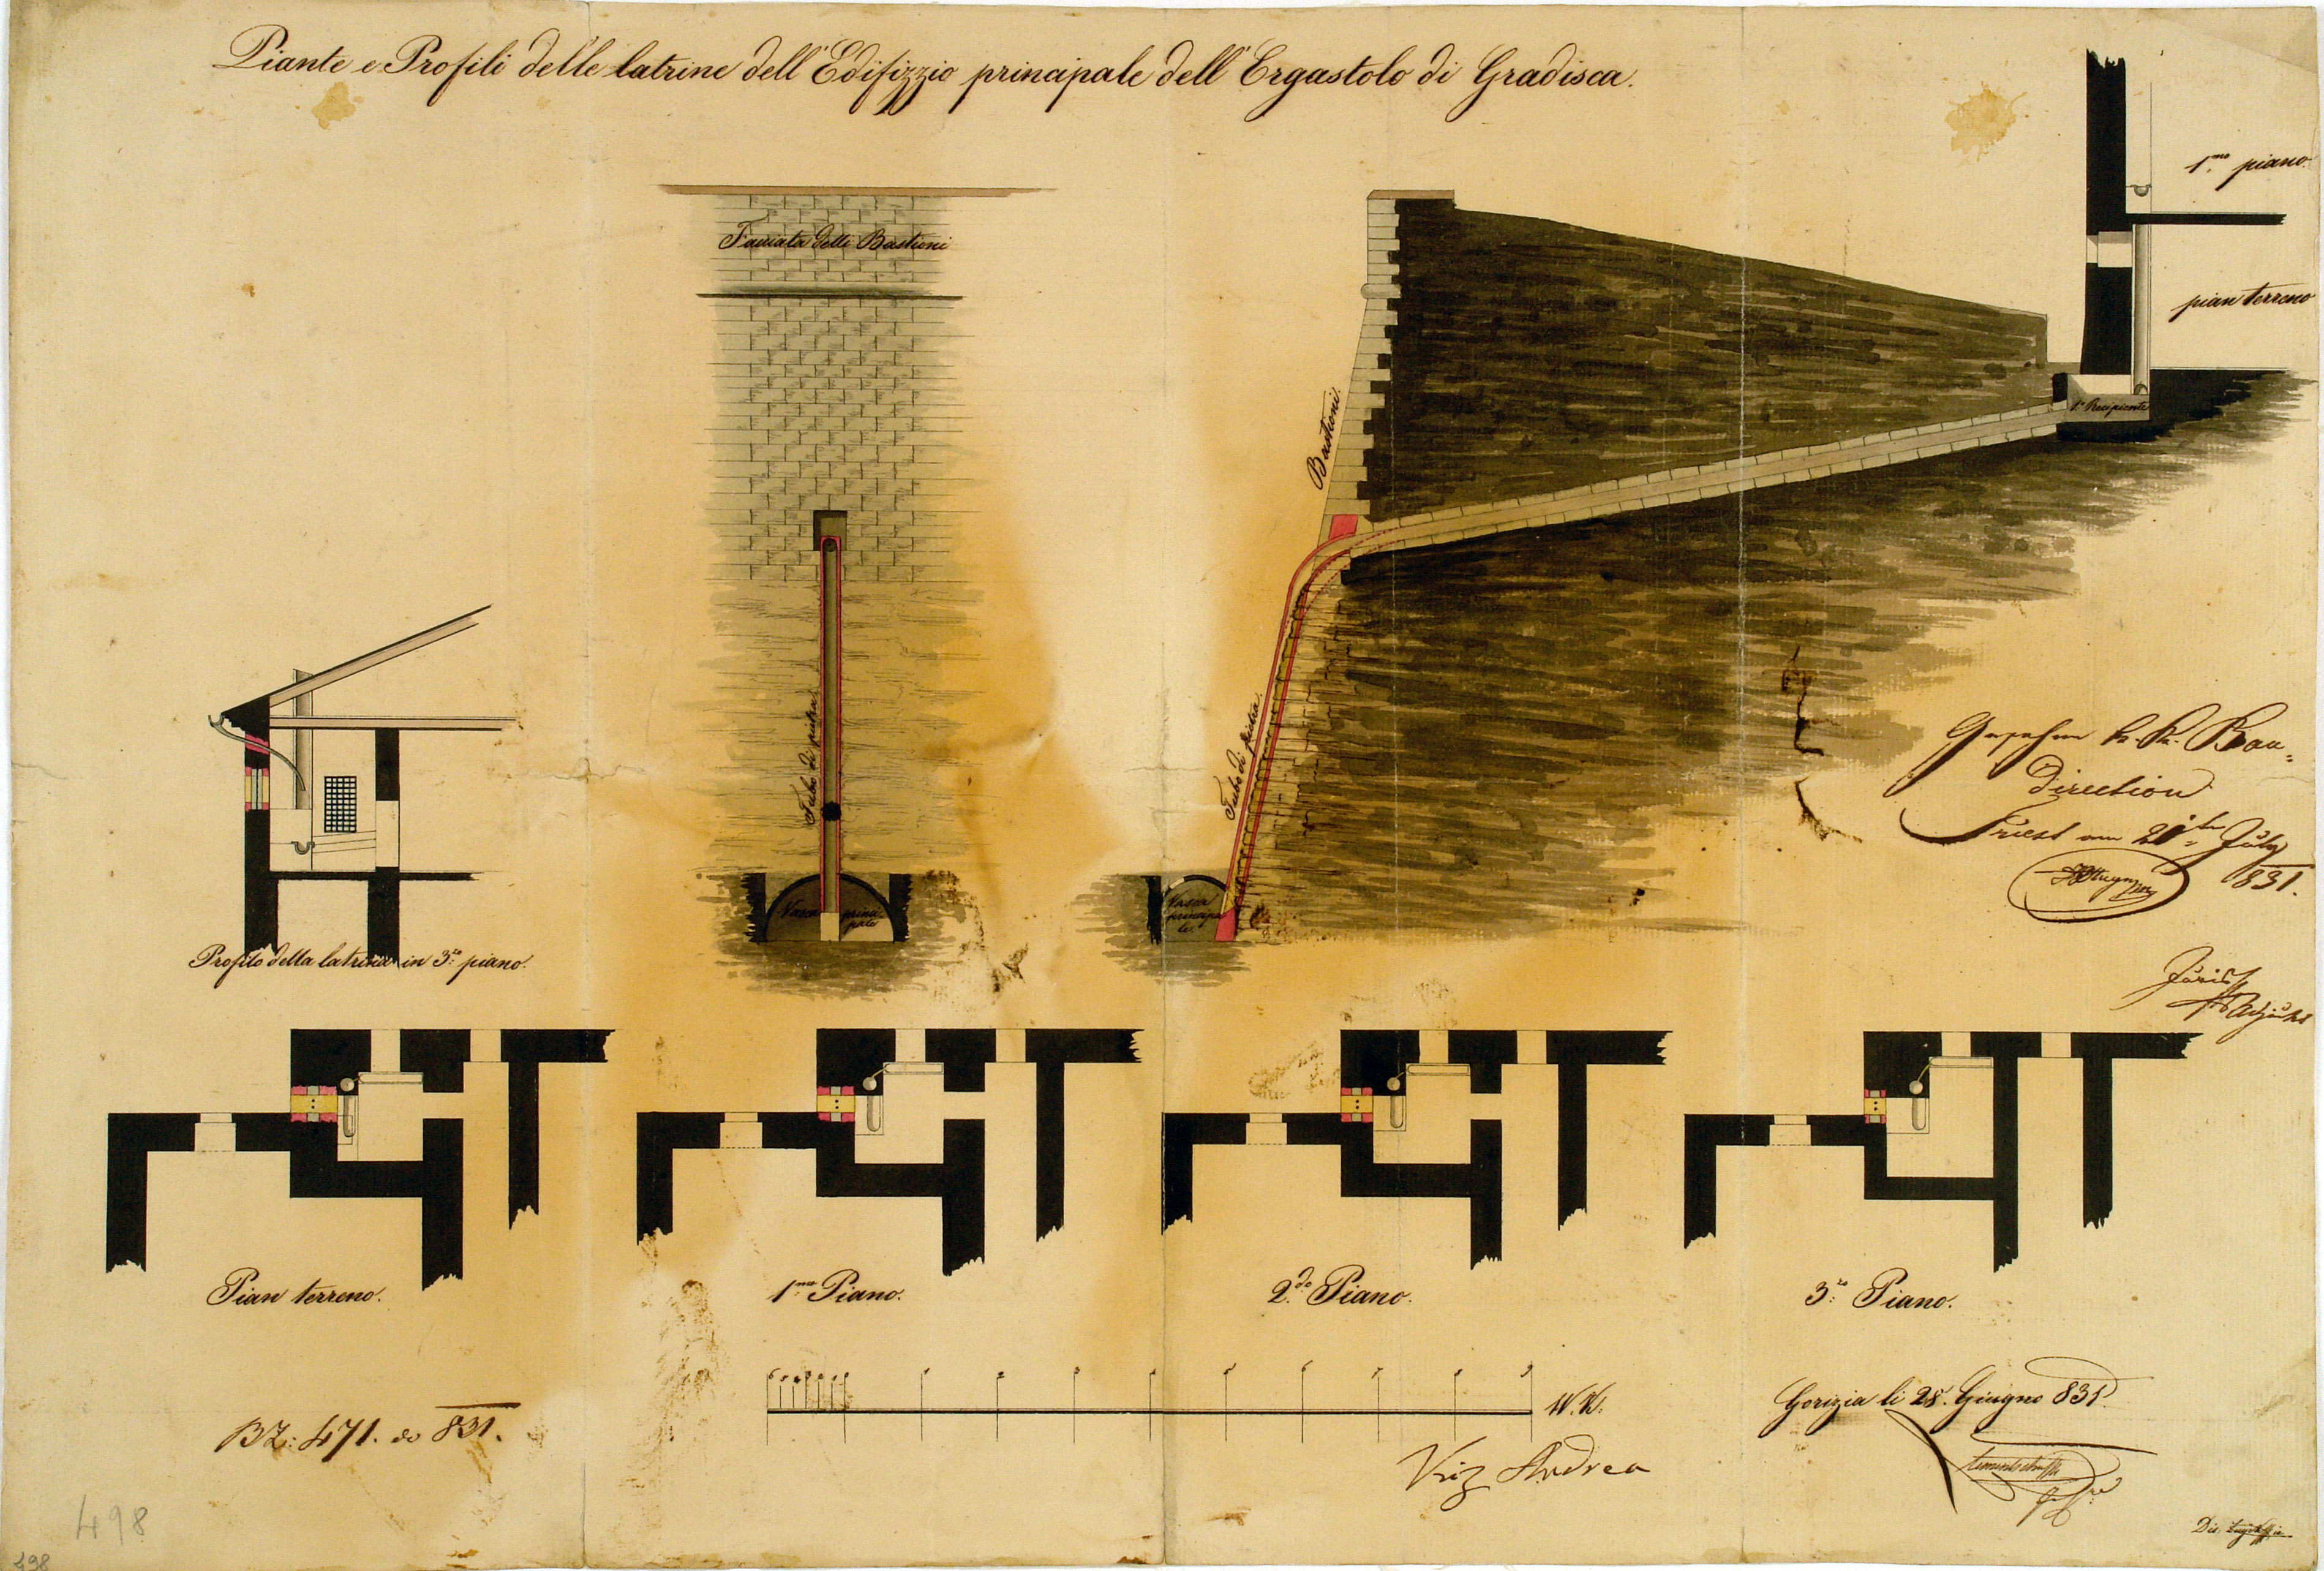 Piante e Profili delle latrine dell'Edifizzio principale dell'Ergastolo di Gradisca.
1.mo piano.
pian terreno
1.o Recipiente
Facciata delli Bastioni
Bastioni.
Tubo di pietra.
Tubo di pietra.
Vasca principale
Vasca
principa
le.
Profilo della latrina in 3.zo piano.
k. k. Bau=
Direction
Triest am 21ten July
831.
Adjunkt
Pian terreno.
1.mo Piano.
2.do Piano.
3.zo Piano.
6 5 4 3 2 1 0 1 2 3 4 5 6 7 8 9
W. K.
BZ: 471. de 831.
Gorizia li 28. Giugno 831.
Kriz Andrea
498
498
Dis.